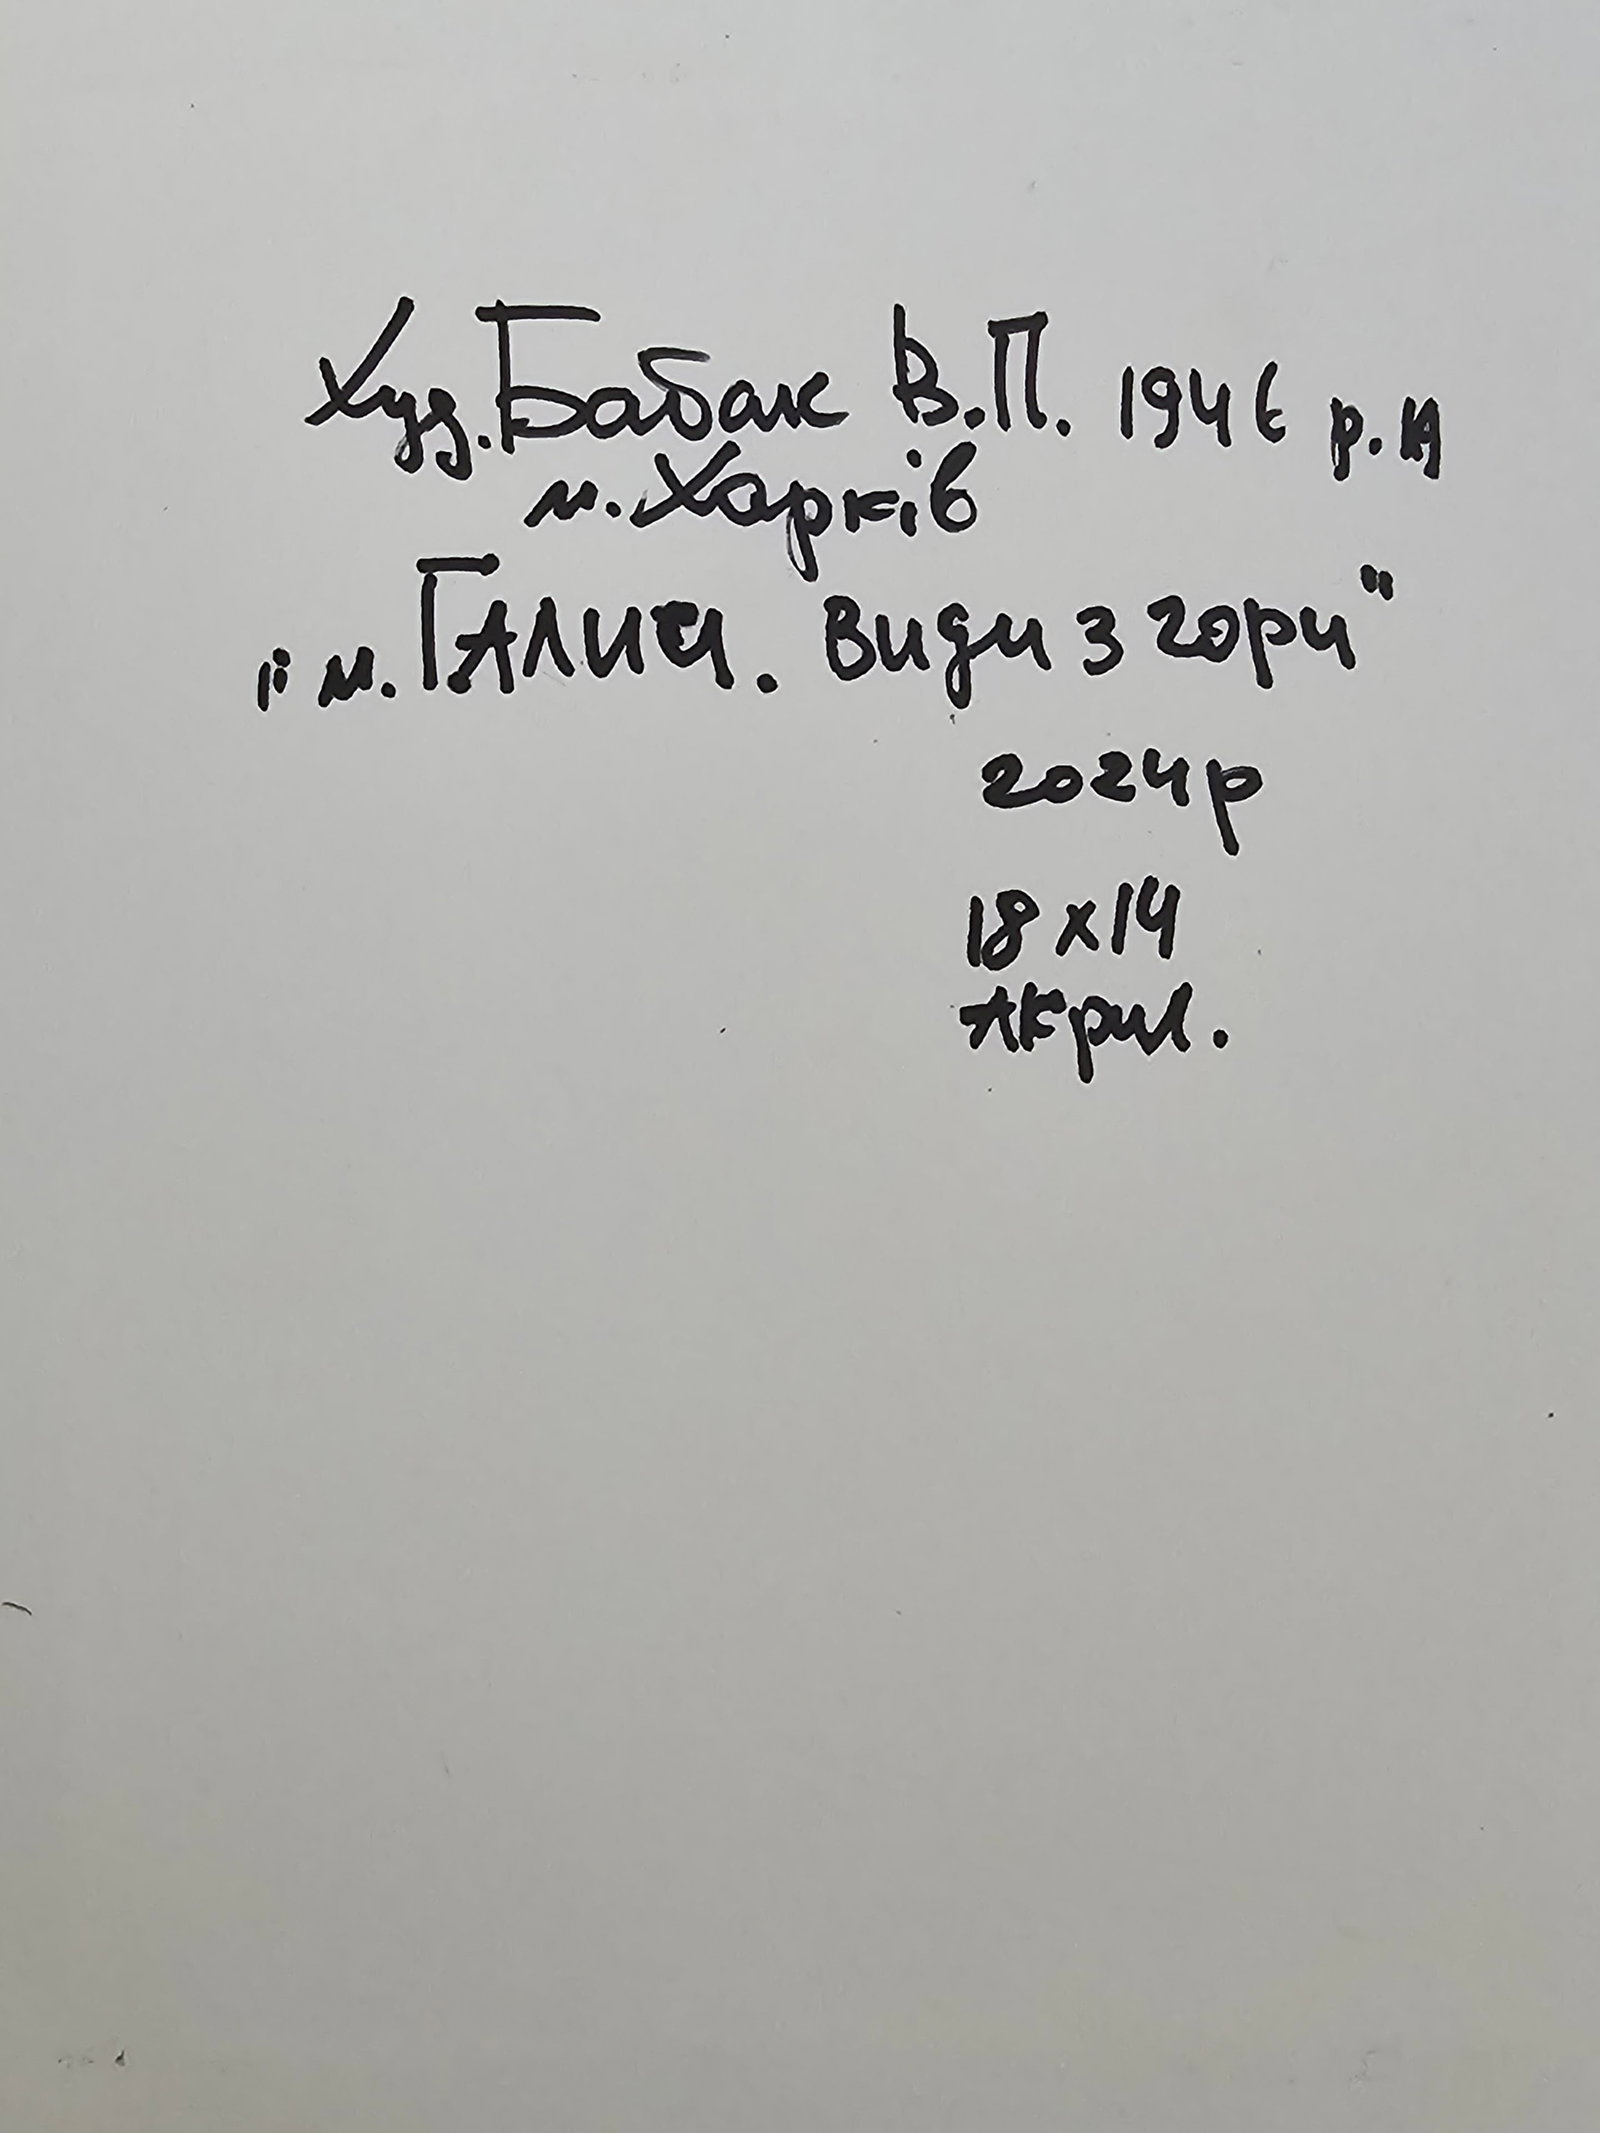 Худ. Бабак В.П. 1946 р.н
м. Харків
"м. Галич. Види з гори"
2024р
18 х 14
Акрил.